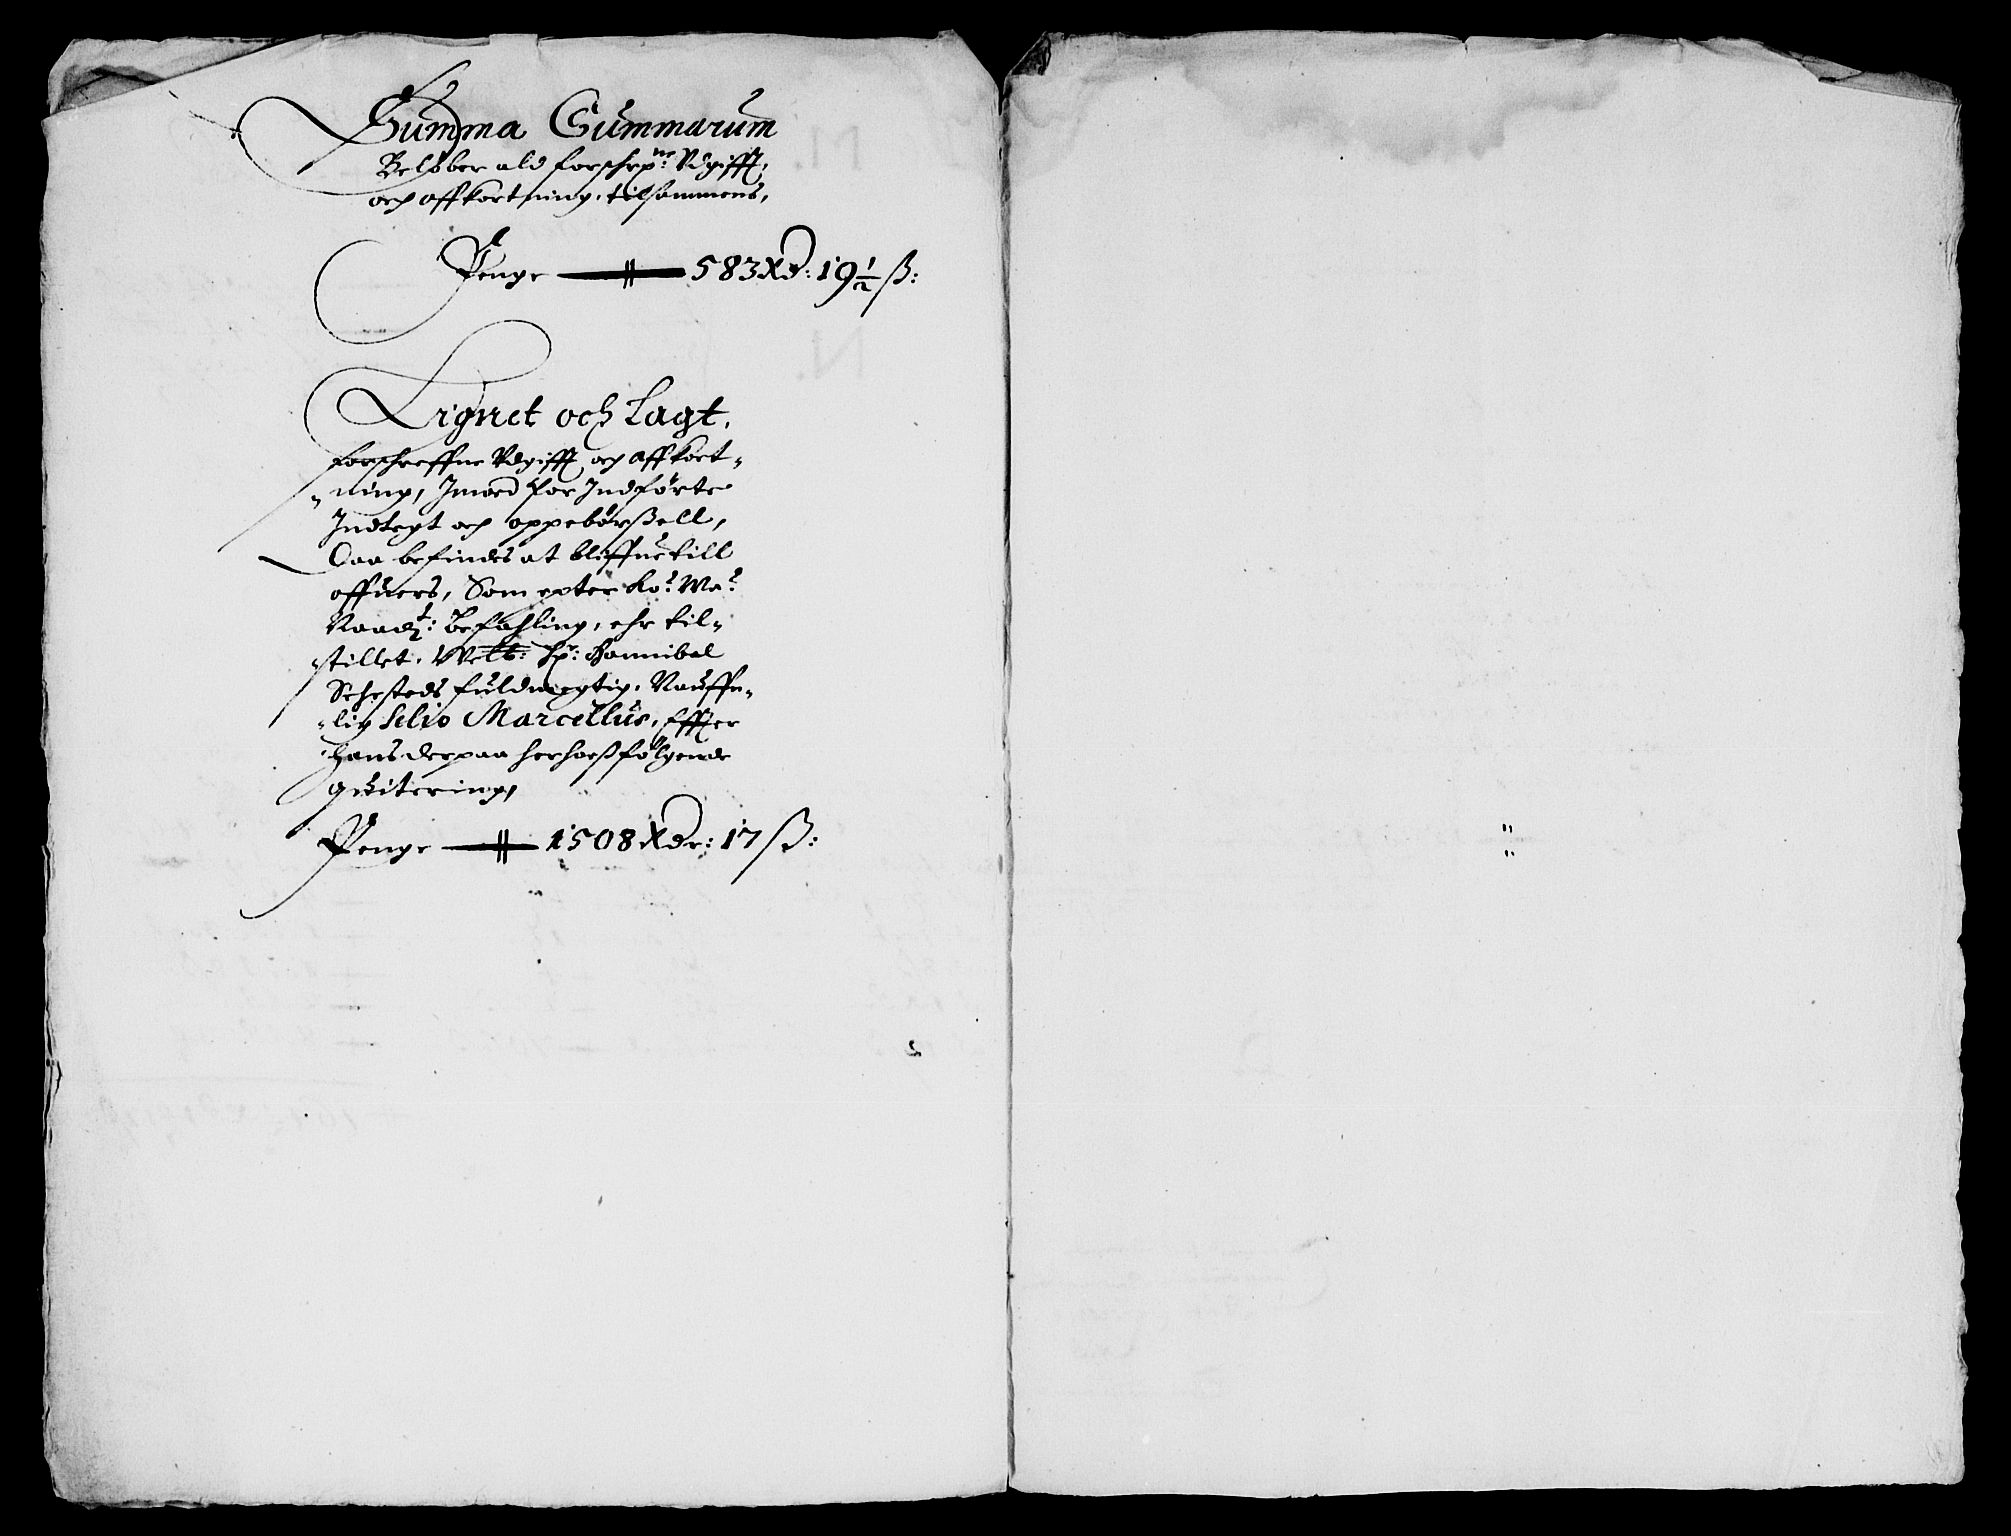 Summa Summarum
Beløber ald forschrp:ne Vdgifft,
och affkortning, tilsammens,
Penge — 583 Rd: 19½ ß:
Lignet och Lagt,
forschreffne Vdgifft och affkort-
ning, Imod for Indførte
Indtegt och oppebørßell,
Daa befindes at bliffue till
offuers, Som epter Ko: Ma:
Naadt: Befahling, ehr til-
stillet, Welb: Hr: Hannibal
Sehesteds fuldmegtig, Nauffn-
lig Selio Marcellus, Effter
hans derpaa herhoeßfølgende
quitering,
Penge — 1508 Rdr: 17 ß: